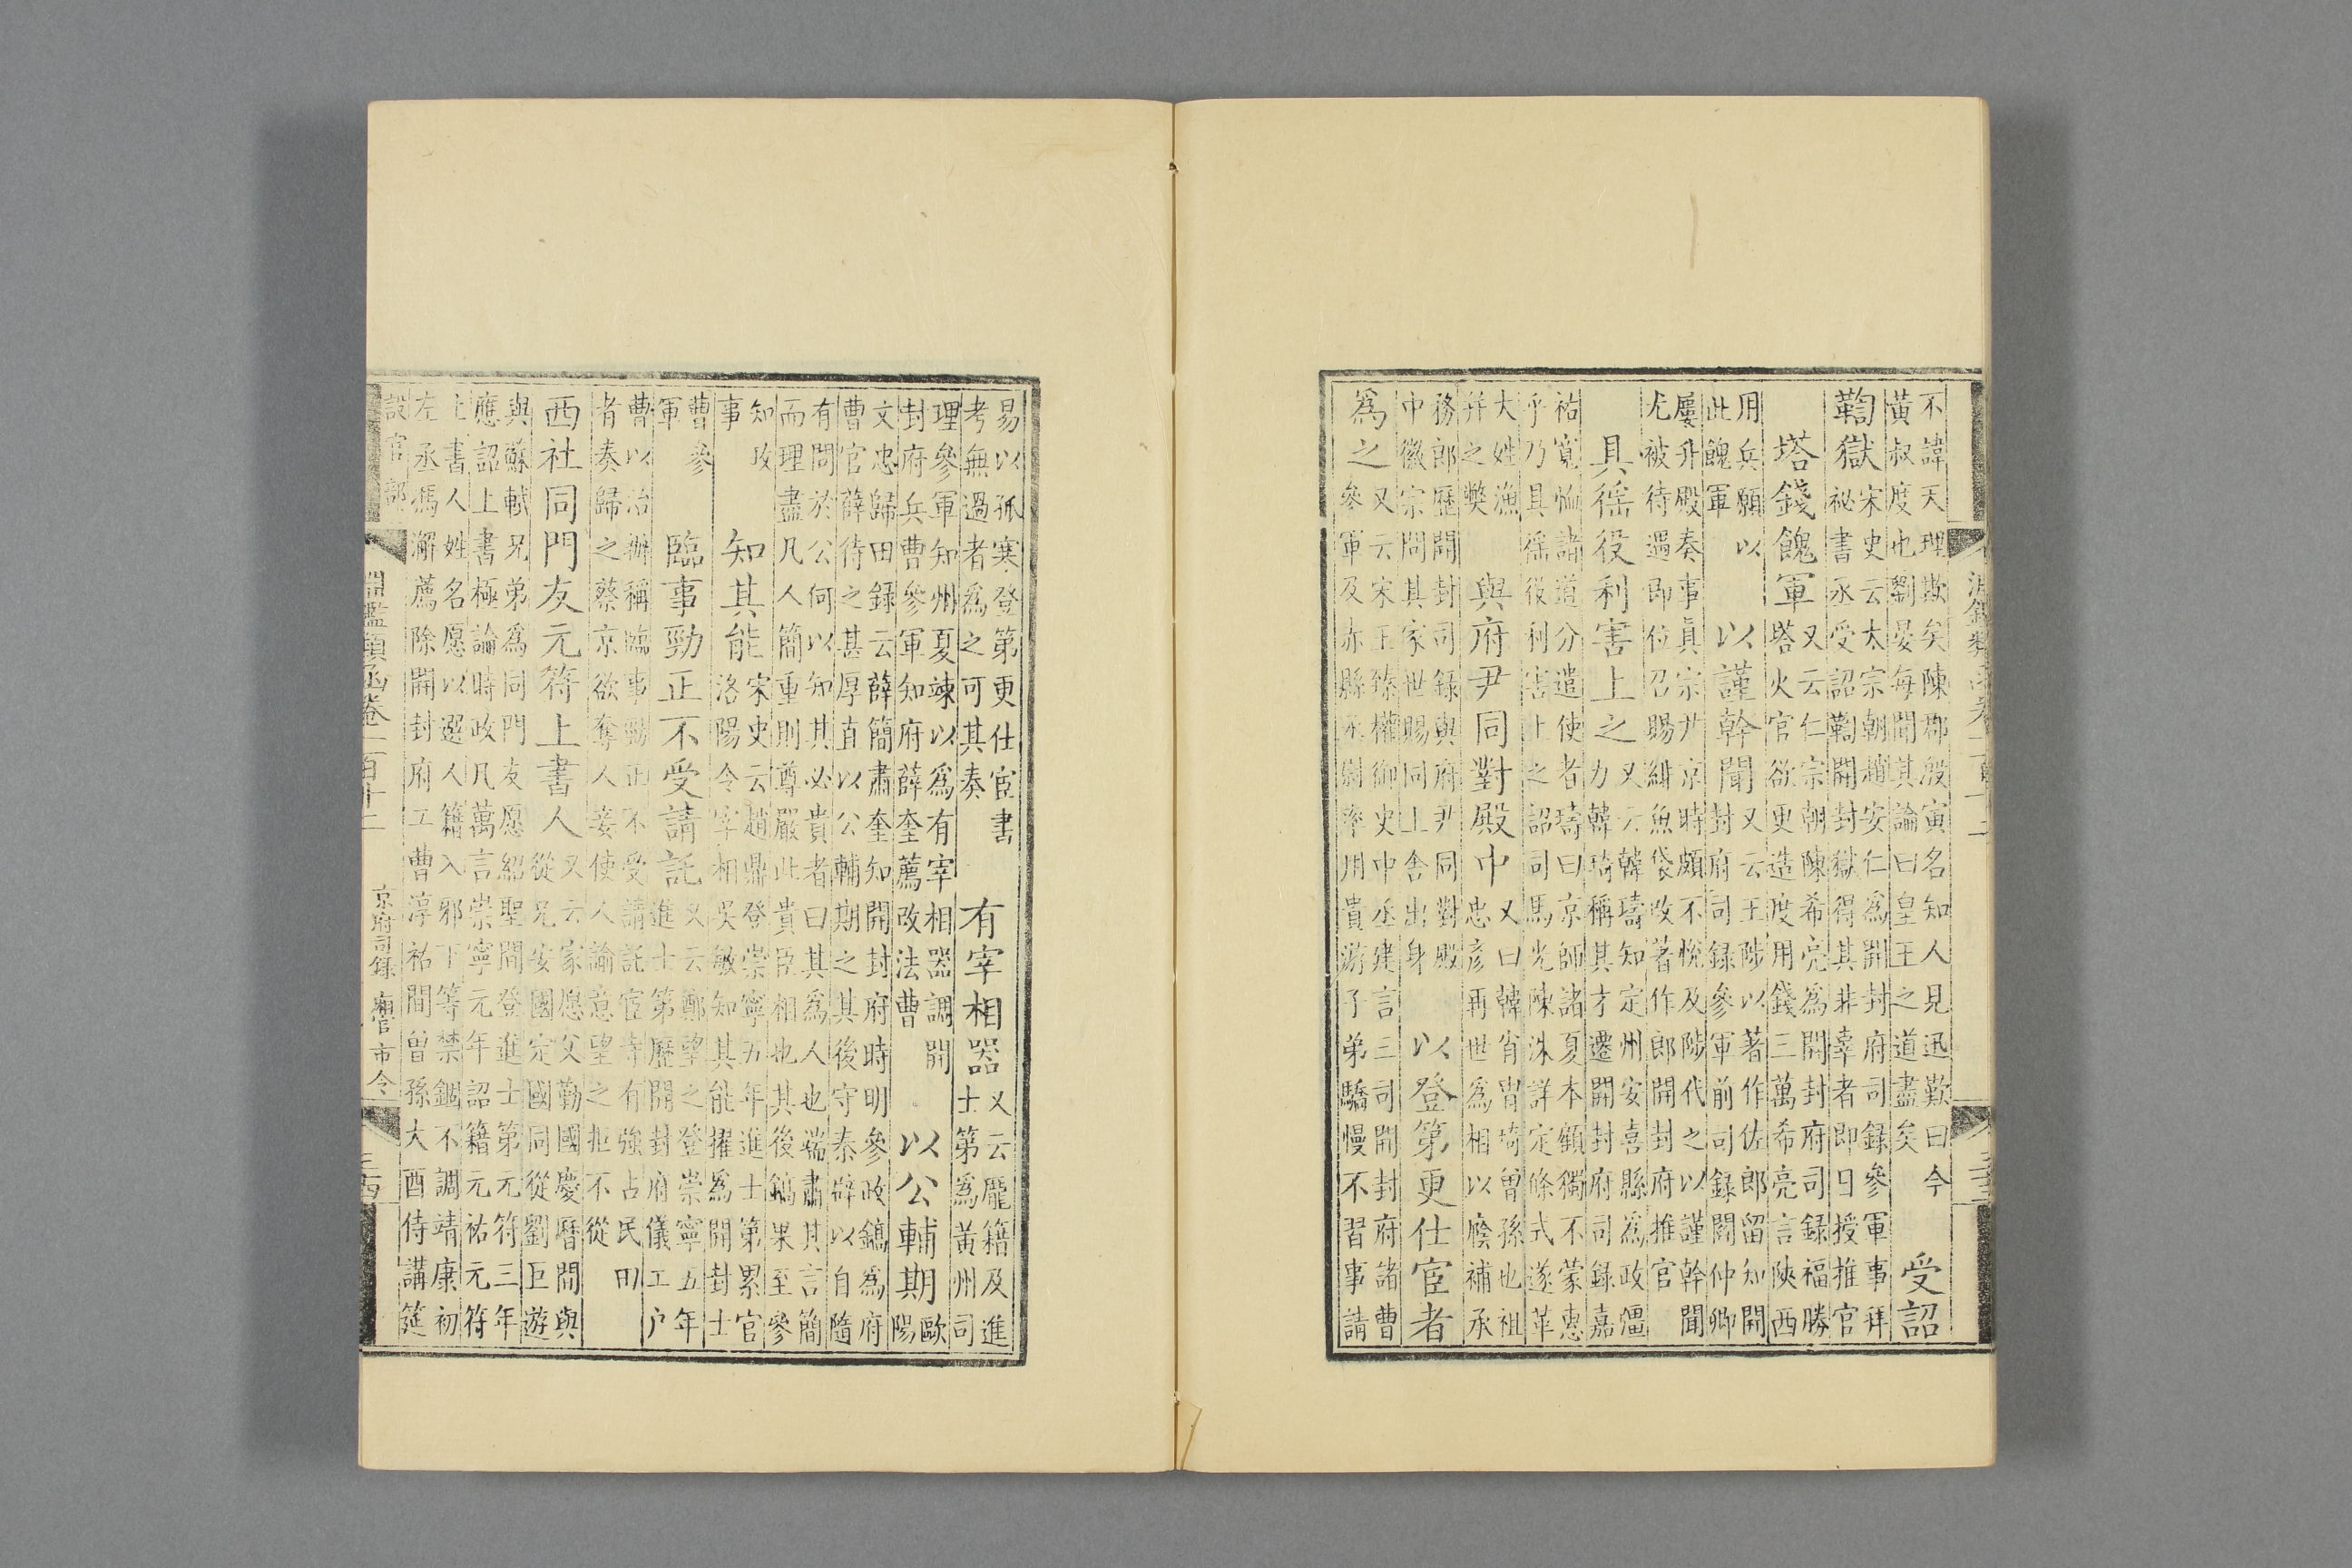 不諱天理欺矣陳郡殷寅名知人見迅歎曰今
黃叔度也劉晏每聞其論曰皇王之道盡矣 受詔
鞫獄 宋史云太宗朝趙安仁為開封府司錄參軍事拜
祕書丞受詔鞫開封獄得其非辜者即日授推官
塔錢餽軍 又云仁宗朝陳希亮為開封府司錄福勝
塔火官欲更造度用錢三萬希亮言陝西
用兵願以
此餽軍 以謹幹聞 又云王陟以著作佐郎留知開
封府司錄參軍前司錄閻仲卿
屢升殿奏事真宗尹京時頗不悅及陟代之以謹幹聞
尤被待遇即位召賜緋魚袋改著作郎開封府推官
具徭役利害上之 又云韓璹知定州安喜縣為政彊
力韓琦稱其才遷開封府司錄嘉
祐寬恤諸道分遣使者璹曰京師諸夏本顧獨不蒙惠
乎乃具徭役利害上之詔司馬光陳洙詳定條式遂革
大姓漁
并之弊 與府尹同對殿中 又曰韓肖冑琦曾孫也祖
忠彥再世為相以廕補承
務郎歷開封司錄與府尹同對殿
中徽宗問其家世賜同上舍出身 以登第更仕宦者
為之 又云宋王臻權御史中丞建言三司開封府諸曹
參軍及赤縣丞尉率用貴游子弟驕慢不習事請
易以孤寒登第更仕宦書
考無過者為之可其奏 有宰相器 又云龐籍及進
士第為黃州司
理參軍知州夏竦以為有宰相器調開
封府兵曹參軍知府薛奎薦改法曹 以公輔期 歐
陽
文忠歸田錄云薛簡肅奎知開封府時明參政鎬為府
曹官薛待之甚厚直以公輔期之其後守秦辟以自隨
有問於公何以知其必貴者曰其為人也端肅其言簡
而理盡凡人簡重則尊嚴此貴臣相也其後鎬果至參
知政
事 知其能 宋史云趙鼎登崇寧五年進士第累官
洛陽令宰相吳敏知其能擢為開封士
曹參
軍 臨事勁正不受請託 又云鄭望之登崇寧五年
進士第歷開封府儀工戶
曹以治辦稱臨事勁正不受請託宦寺有強占民田
者奏歸之蔡京欲奪人妾使人諭意望之拒不從
西社同門友元符上書人 又云家愿父勤國慶曆間與
從兄安國定國同從劉巨遊
與蘇軾兄弟為同門友愿紹聖間登進士第元符三年
應詔上書極論時政凡萬言崇寧元年詔籍元祐元符
上書人姓名愿以選人籍入邪下等禁錮不調靖康初
左丞馮澥薦除開封府工曹淳祐間曾孫大酉侍講筵
設官部
淵鑑類函卷一百十二
京府司錄 廟官 市令